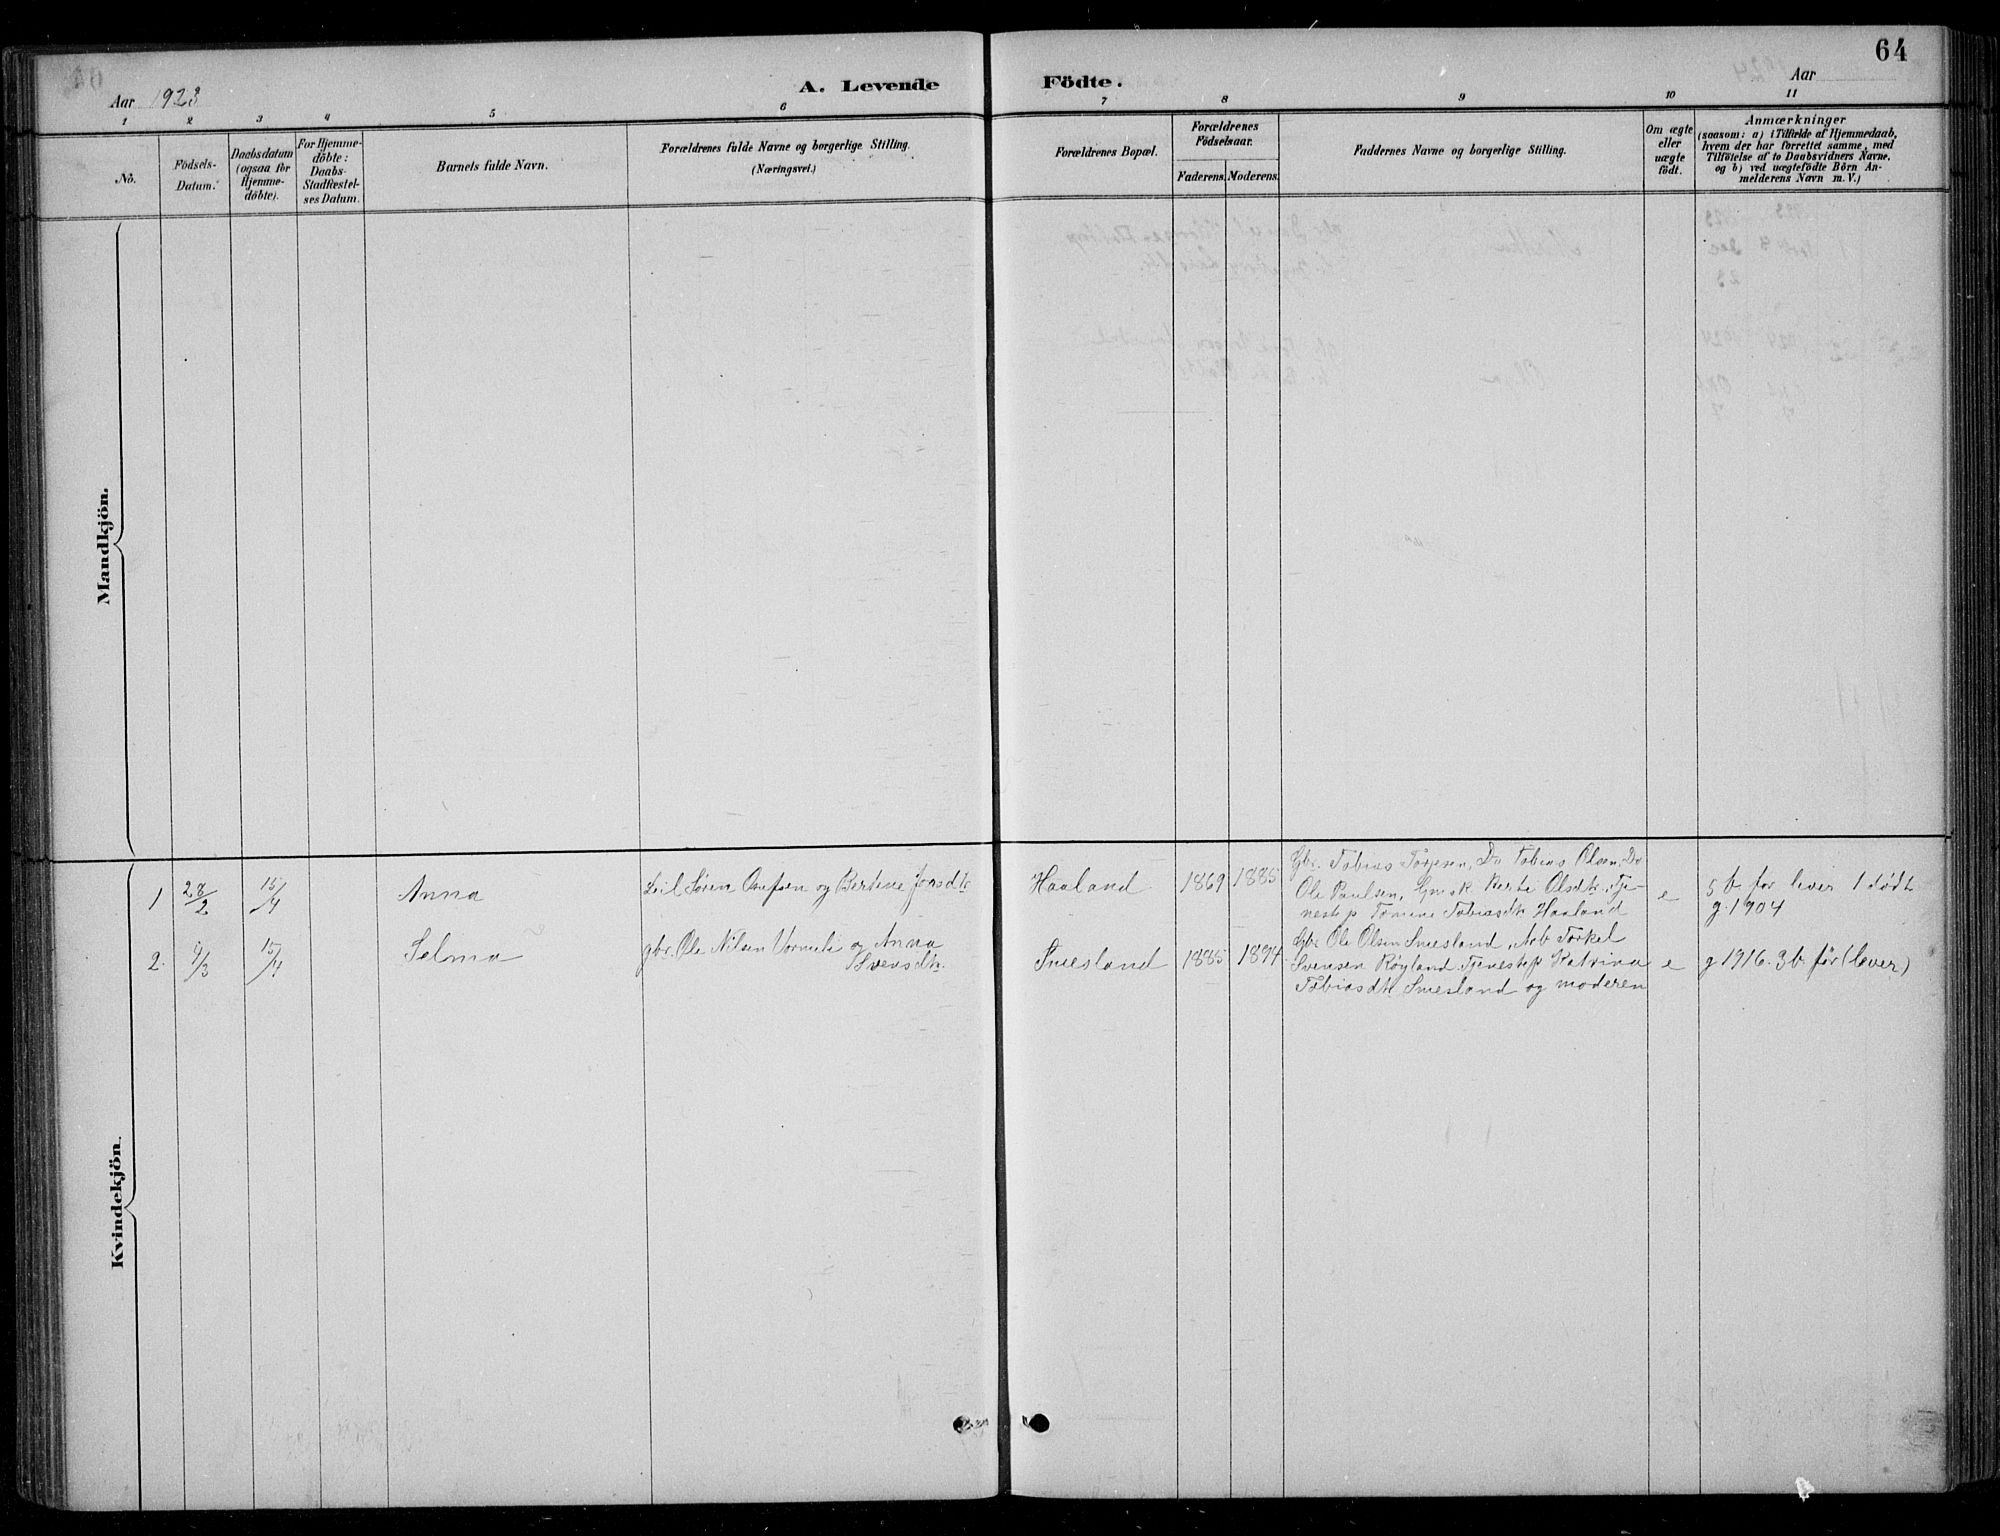 64
Aar 1923
A. Levende Födte.
Aar
1 2 3 4 5 6 7 8 9 10 11
No.
Födsels-
Datum.
Daabsdatum
(ogsaa for
Hjemme-
döbte).
For Hjemme-
döbte:
Daabs-
Stadfæstel-
ses Datum.
Barnets fulde Navn.
Forældrenes fulde Navne og borgerlige Stilling.
(Næringsvei.)
Forældrenes Bopæl.
Forældrenes
Födselsaar.
Faderens. Moderens.
Faddernes Navne og borgerlige Stilling.
Om ægte
eller
uægte
födt.
Anmærkninger
(saasom: a) i Tilfælde af Hjemmedaab,
hvem der har forrettet samme, med
Tilföielse af to Daabsvidners Navne,
og b) ved uægtefödte Börn An-
melderens Navn m. V.)
Mandkjön.
Kvindekjön.
1 28/2 15/4 Anna
Søren og Bertine
Haaland 1869 1885
Gbr. Tobias Torjesen, Do Tobias Olsen, Do
Ole Paulsen, Berte Olsdtr, Tje-
nestep Tomine Tobiasdtr Haaland
e
5 b før lever 1 dødt
g. 1904
2. 4/3 15/4 Selma
gbr. Ole Nilsen og Anna
Svensdtr.
Sniesland 1885 1894
Gbr Ole Olsen Snesland, Arb Torkel
Svensen Røyland Tjenestep Katrina
Tobiasdtr Snesland og moderen
e
g 1916. 3 b. før (lever)